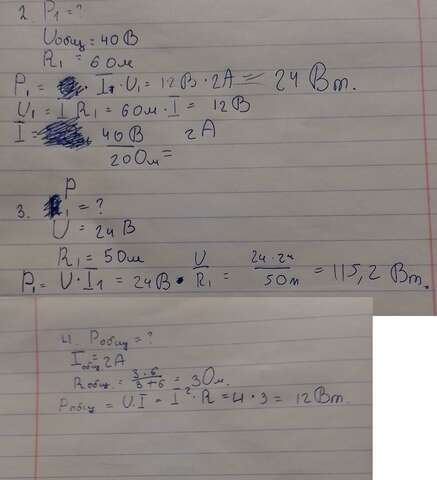 2. P₁ = ?
Uобщ = 40 В
R₁ = 6 Ом
P₁ = I₁ · U₁ = 12 В · 2 А = 24 Вт.
U₁ = I R₁ = 6 Ом · I = 12 В
I = 40 В 2 А
20 Ом =
3. P₁ = ?
U = 24 В
R₁ = 5 Ом
P₁ = U · I₁ = 24 В · U/R₁ = 24·24/5 Ом = 115,2 Вт.
4. Pобщ = ?
Iобщ = 2 А
Rобщ. = 3·6/3+6 = 3 Ом.
Pобщ = U·I = I² · R = 4 · 3 = 12 Вт.